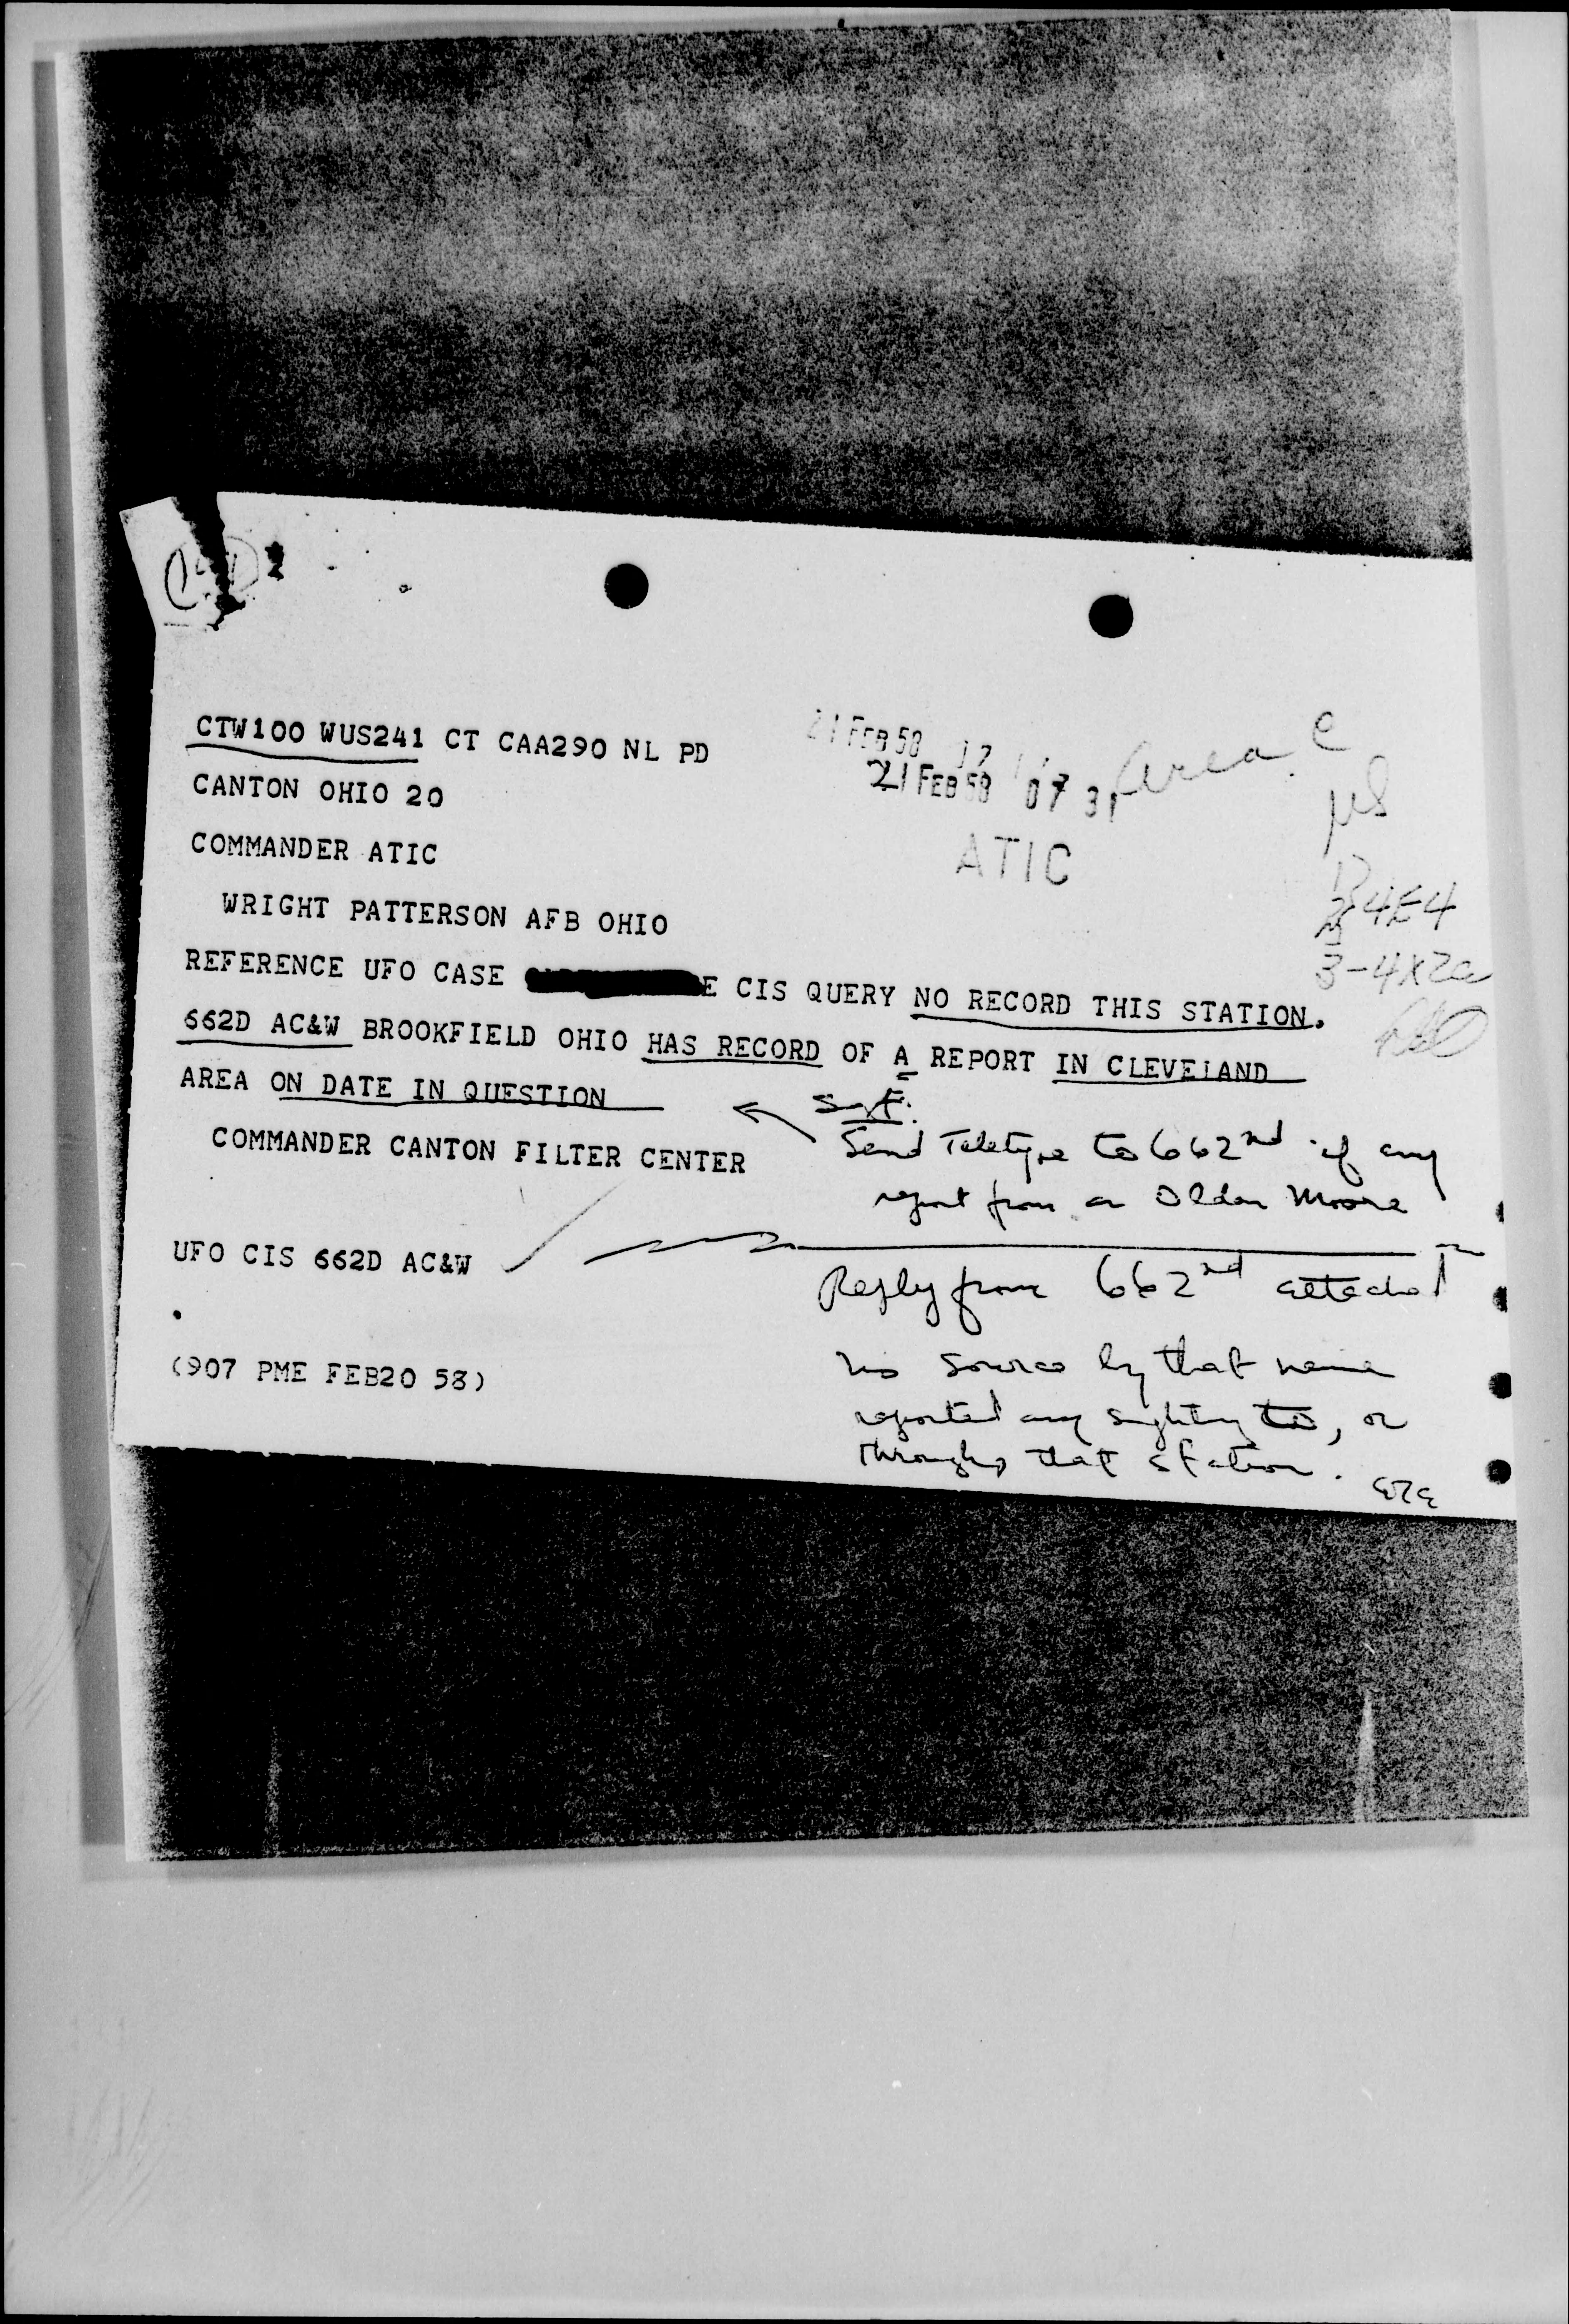 CTW100 WUS241 CT CAA290 NL PD
21 FEB 58 17
21 FEB 58 07 31
Area C
CANTON OHIO 20
COMMANDER ATIC
ATIC
WRIGHT PATTERSON AFB OHIO
4E4
3-4X2a
REFERENCE UFO CASE E CIS QUERY NO RECORD THIS STATION.
662D AC&W BROOKFIELD OHIO HAS RECORD OF A REPORT IN CLEVELAND
AREA ON DATE IN QUESTION
COMMANDER CANTON FILTER CENTER
Send Teletype to 662nd if any
report from a Olden Moore
UFO CIS 662D AC&W
Reply from 662nd attached
.
(907 PME FEB20 58)
no source by that name
reported any sighting to, or
through, that station.